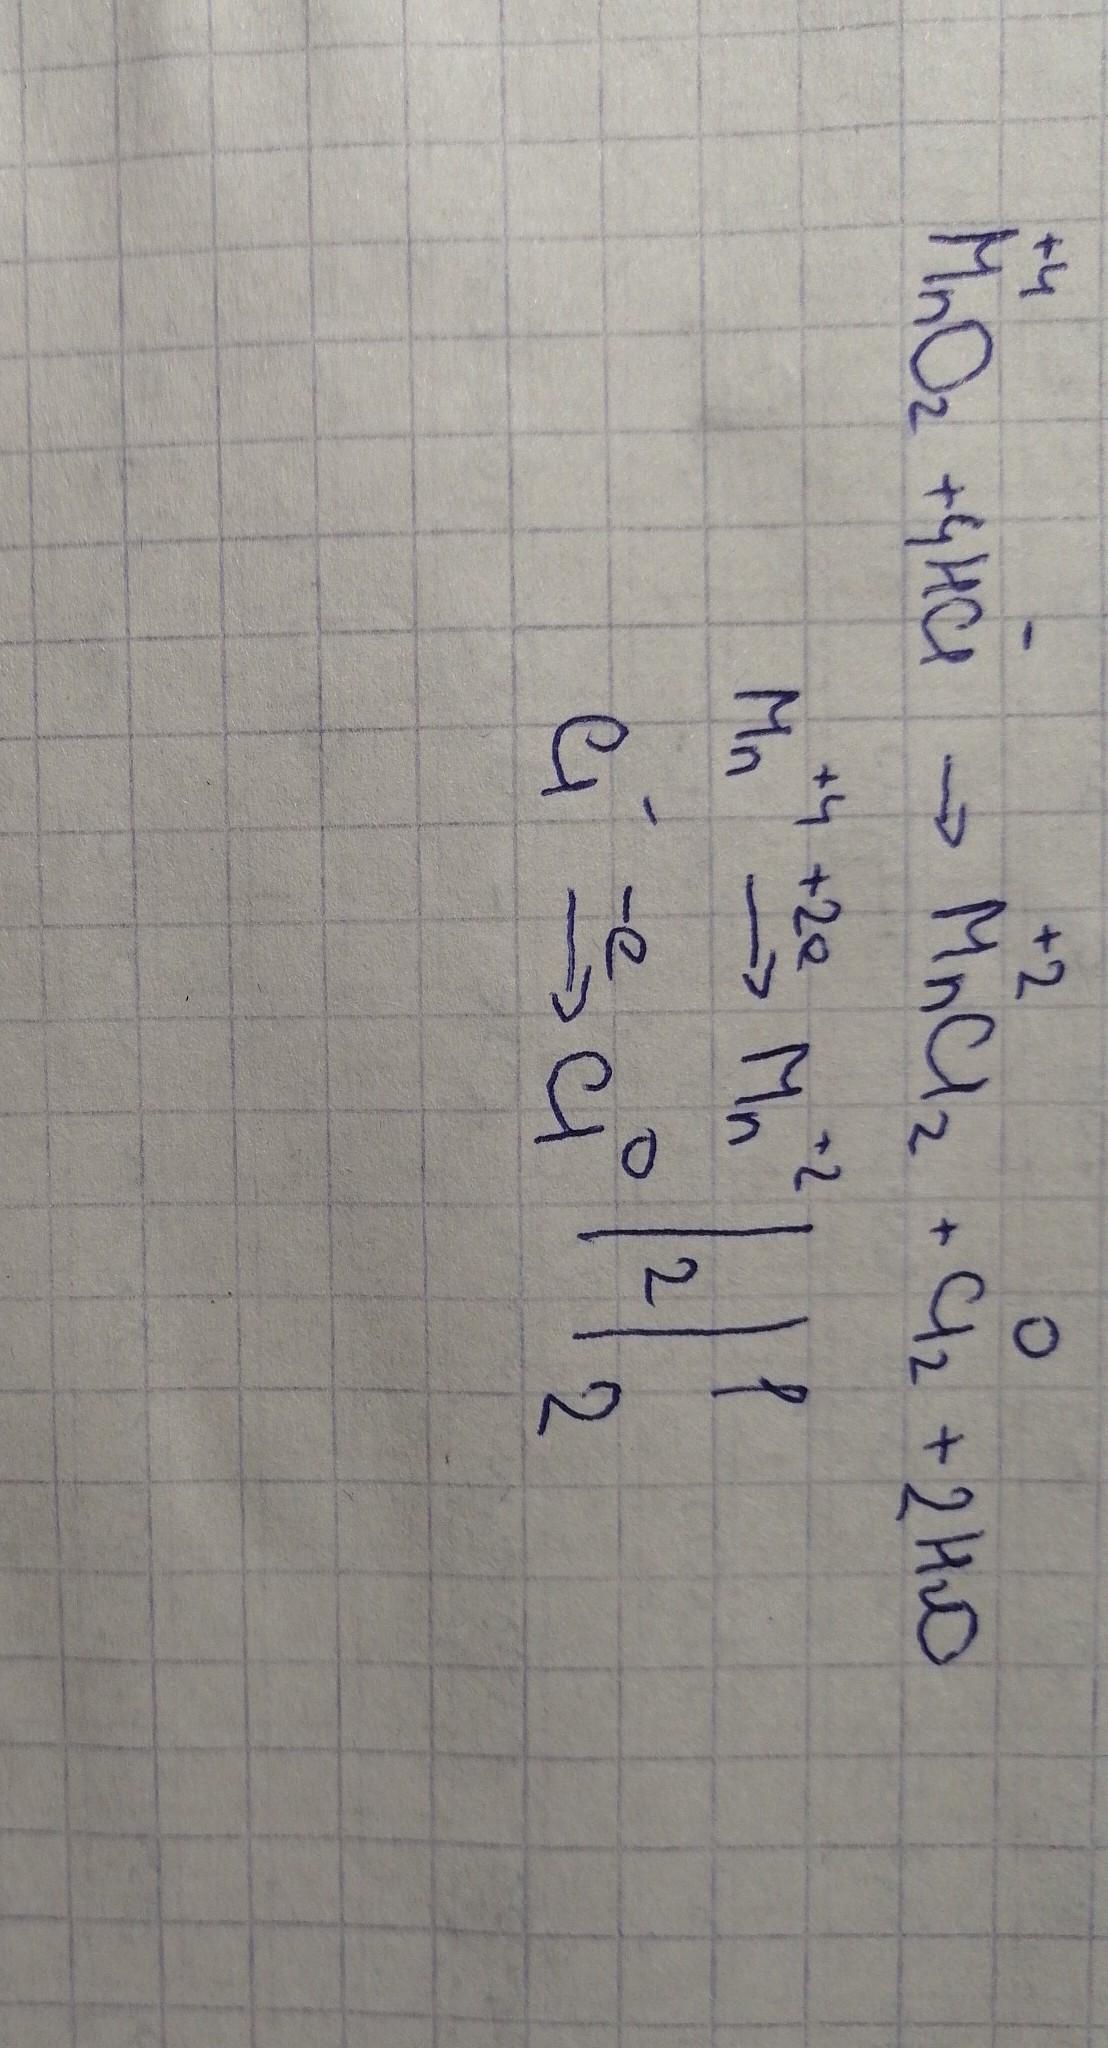 +4 - +2 0
MnO₂ + 4HCl → MnCl₂ + Cl₂ + 2H₂O
Mn⁺⁴ +2e → Mn⁺² | 2 | 1
Cl⁻ -e → Cl⁰ | | 2